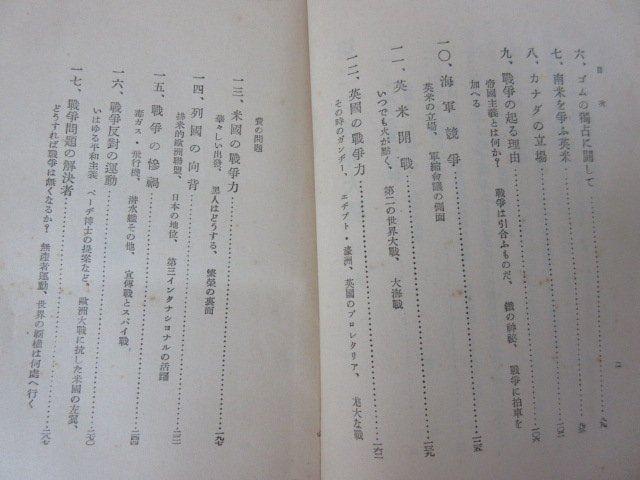 目次
二
六、ゴムの獨占に關して……九
七、南米を爭ふ英米……
八、カナダの立場……
九、戰爭の起る理由……
戰爭は引合ふものだ、鐵の神祕、戰爭に拍車を
加へる
帝國主義とは何か?
一〇、海軍競爭……
英米の立場、軍縮會議の側面
一一、英米開戰……
いつでも火が點く、第二の世界大戰、大海戰
一二、英國の戰爭力……
その時のガンヂー、エヂプト・濠洲、英國のプロレタリア、尨大な戰
費の問題
一三、米國の戰爭力……一九七
華々しい出發、黑人はどうする、繁榮の裏面
一四、列國の向背……
排米的歐洲聯盟、日本の地位、第三インタナショナルの活躍
一五、戰爭の慘禍……二四四
毒ガス・飛行機、潜水艦その他、宣傳戰とスパイ戰
一六、戰爭反對の運動……二七〇
いはゆる平和主義、ペーヂ博士の提案など、歐洲大戰に抗した米國の左翼、
一七、戰爭問題の解決者……二八七
どうすれば戰爭は無くなるか?無產者運動、世界の覇權は何處へ行く